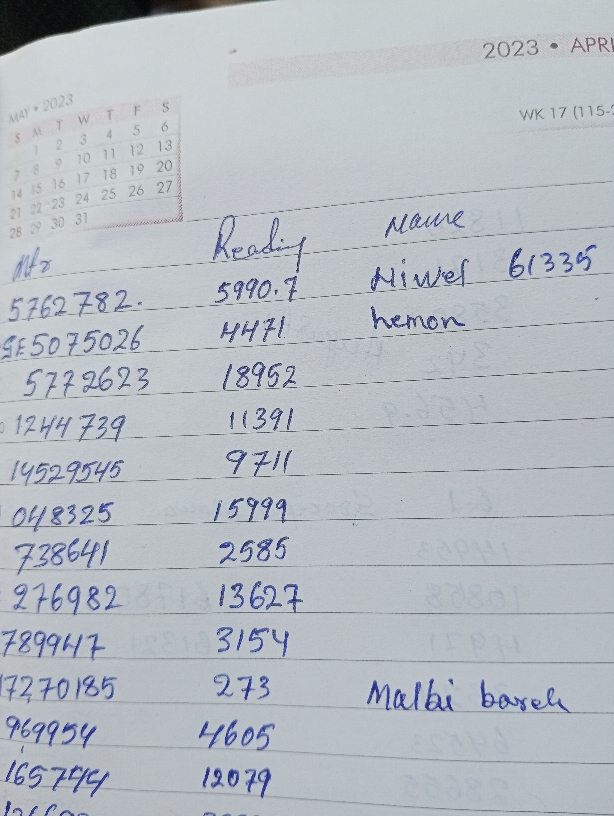 2023 • APRI
MAY • 2023
WK 17 (115-2
S M T W T F S
1 2 3 4 5 6
7 8 9 10 11 12 13
14 15 16 17 18 19 20
21 22 23 24 25 26 27
28 29 30 31
Mtr Reading Name
5762782. 5990.7 Niwel 61335
SE5075026 4471 hemon
5772623 18952
1244739 11391
14529545 9711
048325 15999
738641 2585
276982 13627
789947 3154
17270185 273 Malbi barek
969954 4605
165744 12079